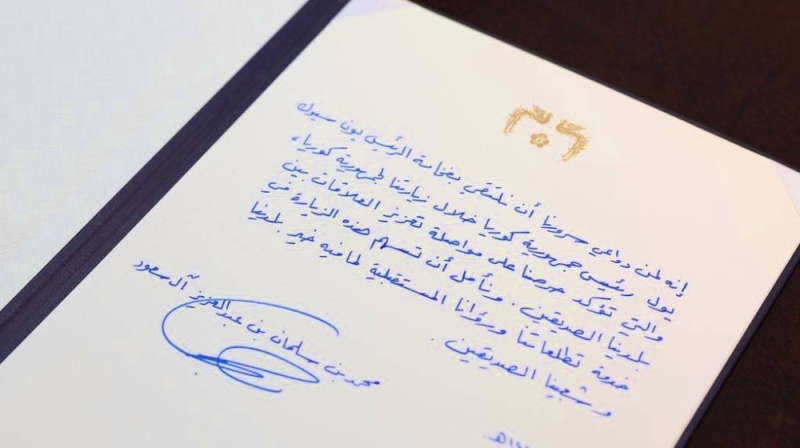 إنه لمن دواعي سرورنا أن نلتقي بفخامة الرئيس يون سيوك
يول رئيس جمهورية كوريا خلال زيارتنا لجمهورية كوريا،
والتي تؤكد حرصنا على مواصلة تعزيز العلاقات بين
بلدينا الصديقين. ونأمل أن تسهم هذه الزيارة في
خدمة تطلعاتنا ورؤانا المستقبلية لما فيه خير بلدينا
وشعبينا الصديقين.
محمد بن سلمان بن عبد العزيز آل سعود